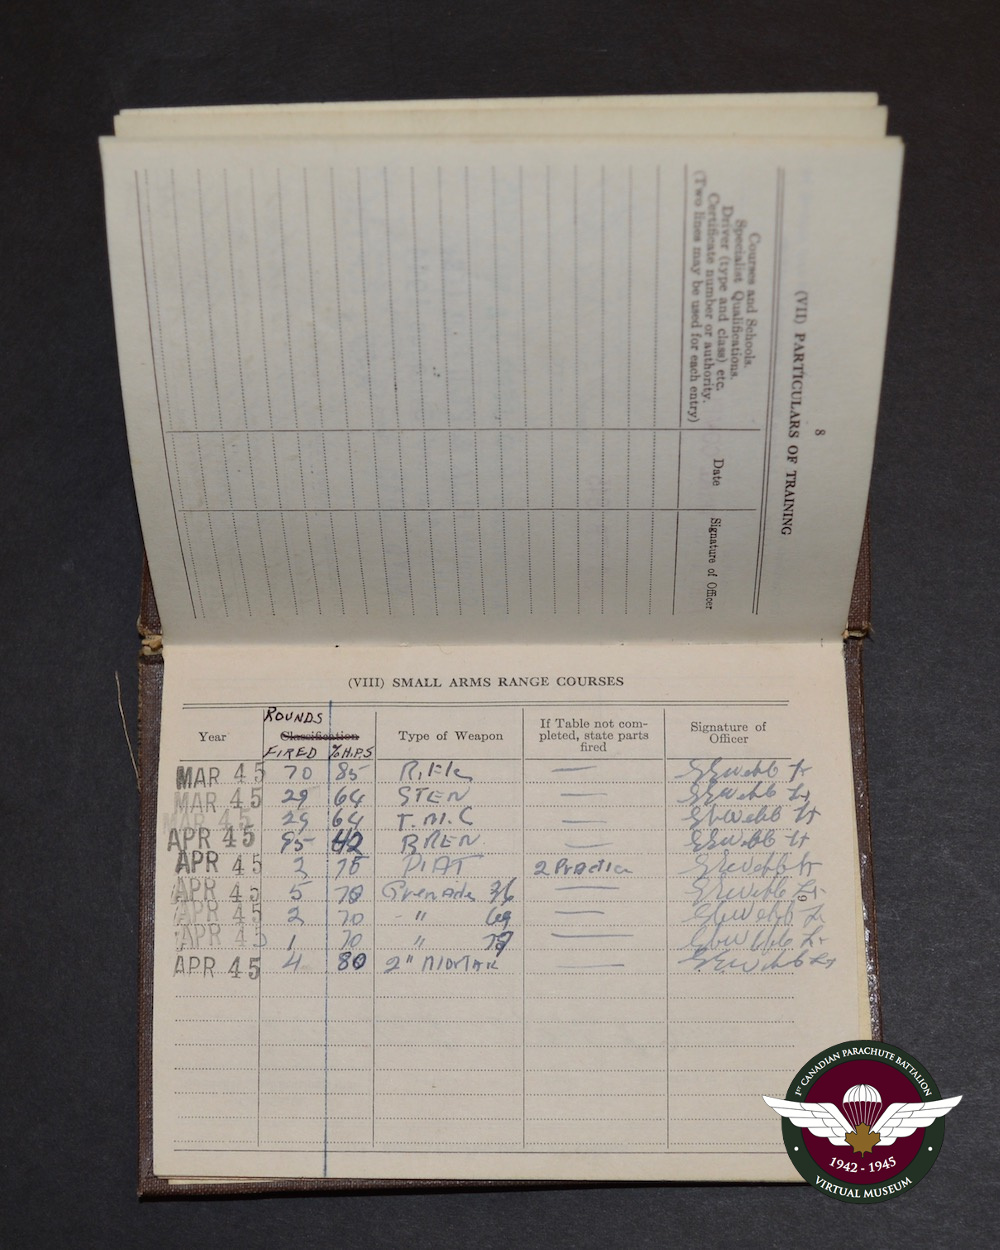 8
(VII) PARTICULARS OF TRAINING
Courses and Schools.
Specialist Qualifications.
Driver (type and class) etc.
Certificate number or authority.
(Two lines may be used for each entry)
Date
Signature of Officer
(VIII) SMALL ARMS RANGE COURSES
Year
ROUNDS
Classification
FIRED %H.P.S
Type of Weapon
If Table not com-
pleted, state parts
fired
Signature of
Officer
MAR 45 70 85 Rifle — Webb Lt
MAR 45 29 64 STEN — Webb Lt
MAR 45 29 64 T.M.C — Webb Lt
APR 45 95 42 BREN — Webb Lt
APR 45 2 75 PIAT 2 Practice Webb Lt
APR 45 5 70 Grenade 36 — Webb Lt
APR 45 2 70 - " 69 — Webb Lt
APR 45 1 70 " — Webb Lt
APR 45 4 80 2" MORTAR — Webb Lt
9
1ST CANADIAN PARACHUTE BATTALION
1942 - 1945
VIRTUAL MUSEUM